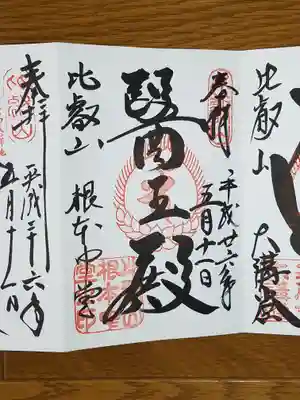 比叡山
大講堂
奉拝
平成廿六年
五月十一日
醫王殿
比叡山
根本中堂
奉拝
平成二十六年
五月十一日